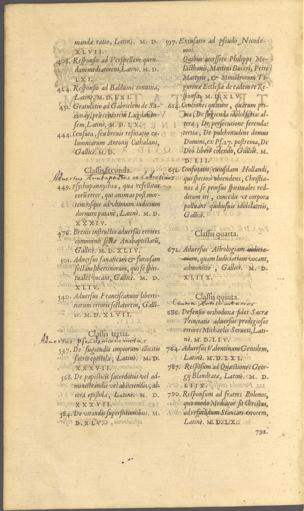 mandæ ratio, Latinè. M. D.
XLVII.
408. Responsio ad Versipellem quen-
dam mediatorem, Latinè. M. D.
LXI.
424. Responsio ad Balduini conuitia,
Latinè, M. D. LXII.
431. Gratulatio ad Gabrielem de
sem, Latinè. M. D. LXI.
444. Censura, seu breuis refutatio ca-
lumniarum Antonij Cathalani,
Gallicè. M. D.
Classis secunda.
Aduersus Anabaptistas
449. Psychopannychia, qua refellitur
eorum error, qui animas post mor-
tem vsque ad vltimum iudicium
dormire putant, Latinè. M. D.
XXXIV.
476. Breuis instructio aduersus errores
communis sectæ Anabaptistarũ,
Gallicè. M. D. XLIV.
501. Aduersus fanaticam & furiosam
sectam libertinorum, qui se spiri-
tuales vocant, Gallicè. M. D.
XLIV.
540. Aduersus Franciscanum liberti-
norum erroris sectatorem, Galli-
cè. M. D. XLVII.
Classis tertia.
Aduersus
547. De fugiendis impiorum illicitis
sacris epistola, Latinè. M. D.
XXXVII.
568. De papisticis sacerdotiis vel ad-
ministrandis vel abiiciendis, al-
tera epistola, Latinè. M. D.
XXXVII.
584. De vitandis superstitionibus. M.
D. XLVI.
597. Excusatio ad pseudo Nicode-
mos.
Quibus accessere Philippi Me-
lanthonis, Martini Buceri, Petri
Martyris, & Ministrorum Ti-
gurinæ Ecclesiæ de eadem re Re-
sponsa. M. D. XLVI.
614. Conciones quatuor, quarum pri-
ma De fugienda idololatria: al-
tera, De persecutione ferenda:
tertia, De pulchritudine domus
Domini, ex Psal. 27. postrema, De
Deo libere colendo, Gallicè. M.
D. LII.
651. Confutatio cuiusdam Hollandi,
qui specioso obtendens, Christia-
nos à se prorsus spirituales red-
ditum iri, concedit vt corpora
polluant quibusuis idololatriis,
Gallicè.
Classis quarta.
671. Aduersus Astrologiam
quam Iudiciariam vocant,
admonitio, Gallicè. M. D.
XLIIX.
Classis quinta.
686. Defensio orthodoxæ fidei Sacræ
Trinitatis aduersus prodigiosos
errores Michaelis Serueti, Lati-
nè. M. D. LIV.
764. Aduersus Valentinum Gentilem,
Latinè. M. D. LXI.
787. Responsum ad Quæstiones Geor-
gij Blandratæ, Latinè. M. D.
LIIX.
790. Responsum ad fratres Polonos,
quomodo Mediator sit Christus,
ad refutandum Stancari errorem,
Latinè. M. D. LX.
792.